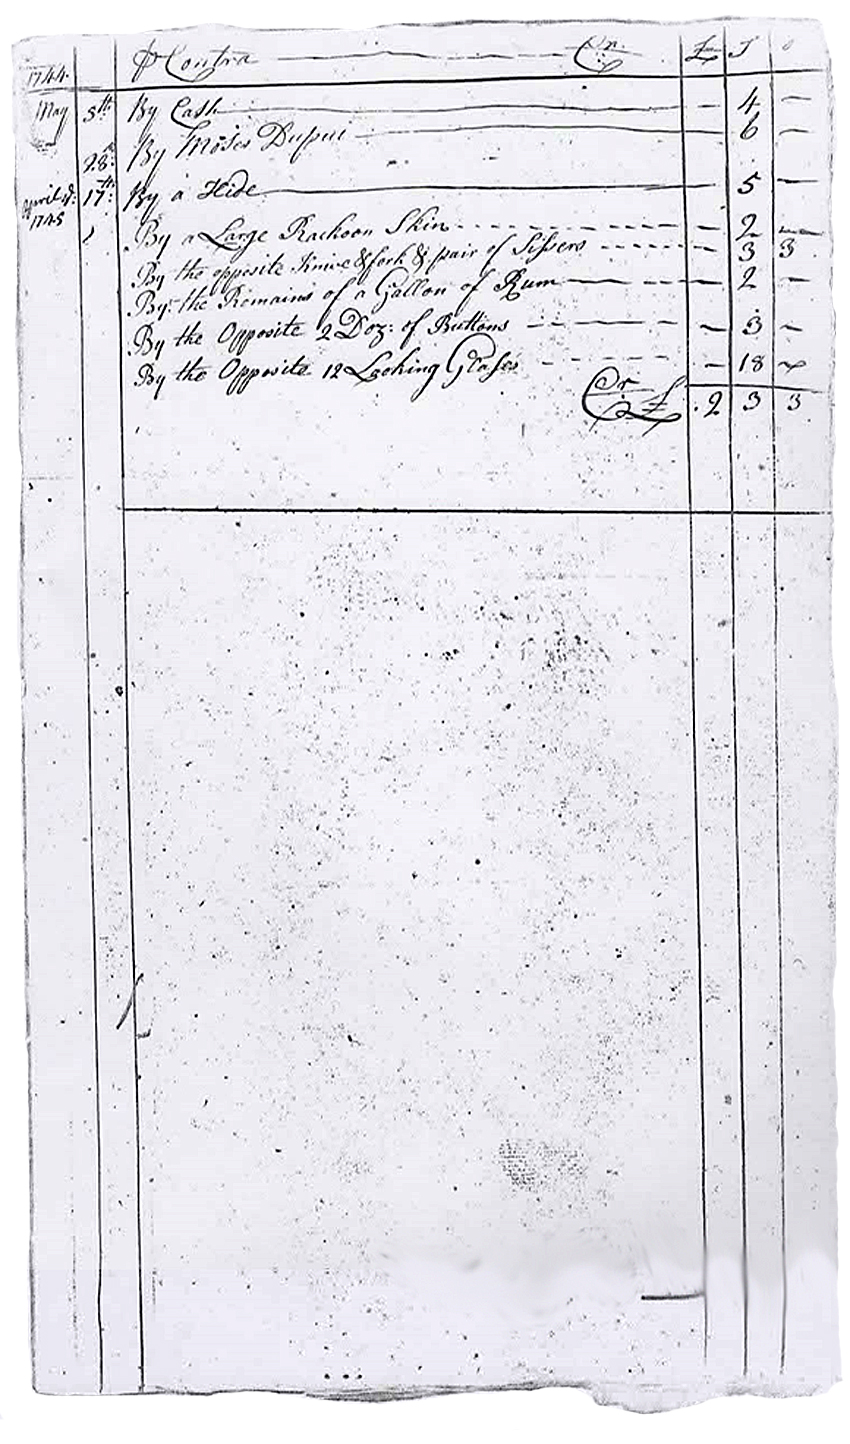 1744 ⅌ Contra Cr. £ S D
May 5th By Cash — 4 —
28th By Moses Dupui — 6 —
April ye 17th 1745 By a Hide — 5 —
By a Large Rackoon Skin — 2 —
By the opposite Knive & fork & pair of Sissers 3 3
By the Remains of a Gallon of Rum — 2 —
By the Opposite 2 Doz: of Buttons — 3 —
By the Opposite 12 Looking Glases — 18 —
Cr £ 2 3 3